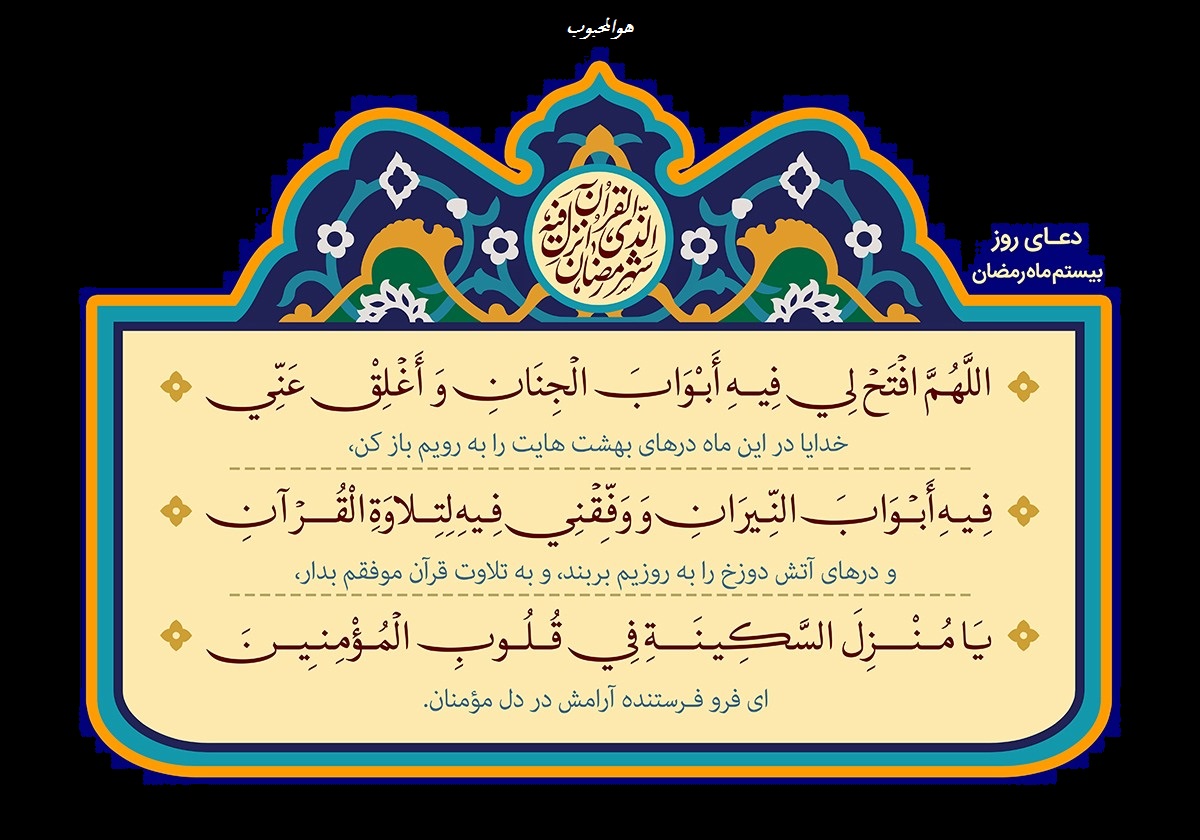 هوالمحبوب
شهر رمضان
الذی انزل فیه
القرآن
دعـای روز
بیستم ماه رمضان
اللَّهُمَّ افْتَحْ لِي فِيهِ أَبْوَابَ الْجِنَانِ وَ أَغْلِقْ عَنِّي
خدایا در این ماه درهای بهشت هایت را به رویم باز کن،
فِيهِ أَبْوَابَ النِّيرَانِ وَ وَفِّقْنِي فِيهِ لِتِلاوَةِ الْقُرْآنِ
و درهای آتش دوزخ را به روزیم بربند، و به تلاوت قرآن موفقم بدار،
يَا مُنْزِلَ السَّكِينَةِ فِي قُلُوبِ الْمُؤْمِنِينَ
ای فرو فرستنده آرامش در دل مؤمنان.